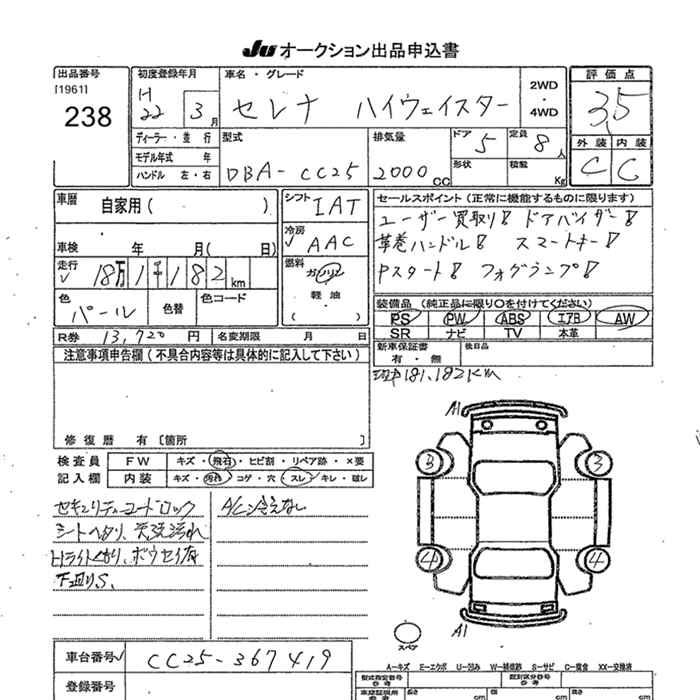 JU オークション出品申込書
出品番号
[1961]
238
初度登録年月
H
22 3月
車名・グレード
セレナ ハイウェイスター
2WD
・
4WD
評価点
3.5
外装 内装
C C
ディーラー・並行
モデル年式 年
ハンドル 左・右
型式
DBA-CC25
排気量
2000 cc
ドア 5
定員 8人
形状
積載 Kg
車歴 自家用( )
車検 年 月( 日)
走行 18万1千182km
色 パール
色替
色コード
シフト IAT
冷房 AAC
燃料 ガソリン
軽油
セールスポイント(正常に機能するものに限ります)
ユーザー買取り!! ドアバイザー!!
革巻ハンドル!! スマートキー!!
Pスタート!! フォグランプ!!
装備品(純正品に限り○を付けてください)
PS PW ABS エアB AW
SR ナビ TV 本革
新車保証書
有・無
後日品
R券 13,720円
名変期限 月 日
181,182km
注意事項申告欄(不具合内容等は具体的に記入して下さい)
修復歴 有〔箇所 〕
検査員
記入欄
FW キズ・飛石・ヒビ割・リペア跡・×要
内装 キズ・汚れ・コゲ・穴・スレ・キレ・破レ
セキュリティーコードロック
シートヘタリ、天張汚れ
Hライトくもり、ボウセイ有
下廻りS、
A/Cン含えなし
A1
3 3
4 4
A1
スペア
A-キズ E-エクボ U-凹み W-補修跡 S-サビ C-腐食 XX-交換済
車台番号 CC25-367419
登録番号
型式指定番号
参考
類別区分番号
参考
長さ cm
幅 cm
高さ cm